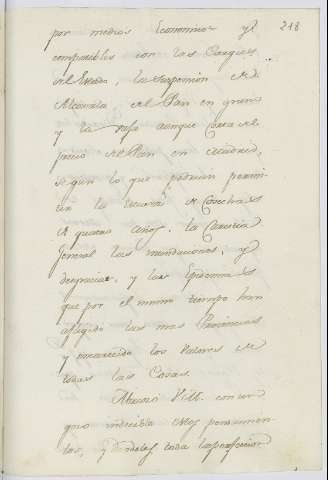 218
por medios Economicos y
compatibles con las Cargas
del Estado, la supresion de
Alcavala, del Pan en grano
y la refa aunque corta del
precio del Pan en
segun lo que podrian permi-
tir la de Cosechas
de quatro años, la Carestia
General las inundaciones, y
desgracias, y las Epidemias
que por el mismo tiempo han
afligido las mas Provincias
y encarecido los Valores de
todas las Cosas.
Abrazó V.M. con un
gozo indecible estos pensamien-
tos, y dandoles toda la perfeccion